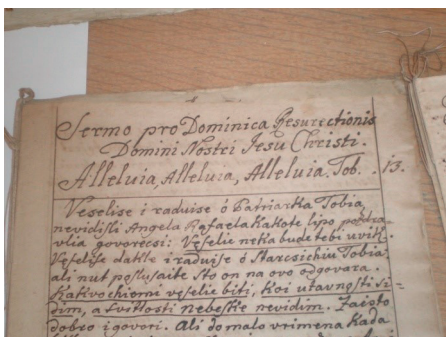 Sermo pro Dominica Resurectionis
Domini Nostri Iesu Christi.
Alleluia, Alleluia, Alleluia. Tob. 13.
Veselise i raduise ó Patriarka Tobia,
nevidisli Angela Rafaela kakote lipo pozdra
vlia govorecsi: Veselie neka bude tebi uvik.
Veselise dakle i raduise ó Starcsichiu Tobia
ali nut poslusaite sto on na ovo odgovara.
Kakvo chiemi veselie biti, koi utavnosti si-
dim, a svitlosti nebeske nevidim. Zaisto
dobro i govori. Ali do malo vrimena kada